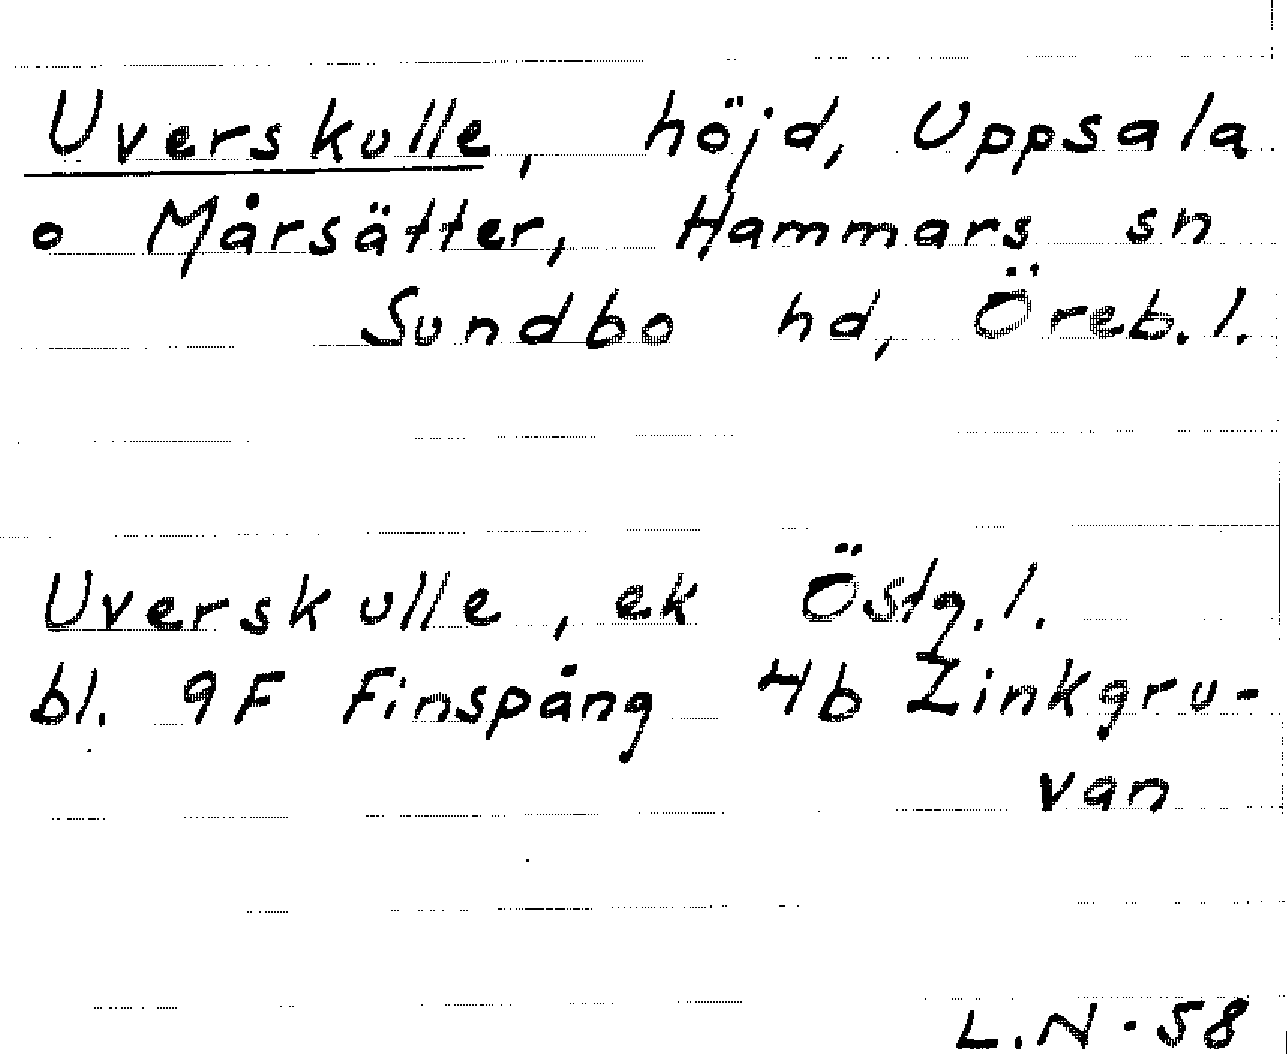 Uverskulle, höjd, Uppsala
o Mårsätter, Hammars sn
Sundbo hd, Öreb. l.
Uverskulle, ek Östg. l.
bl. 9F Finspång 4b Zinkgru-
van
L.N. 58